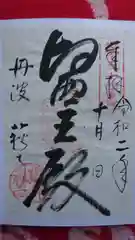 奉拝
令和二年
十月 日
醫王殿
丹波